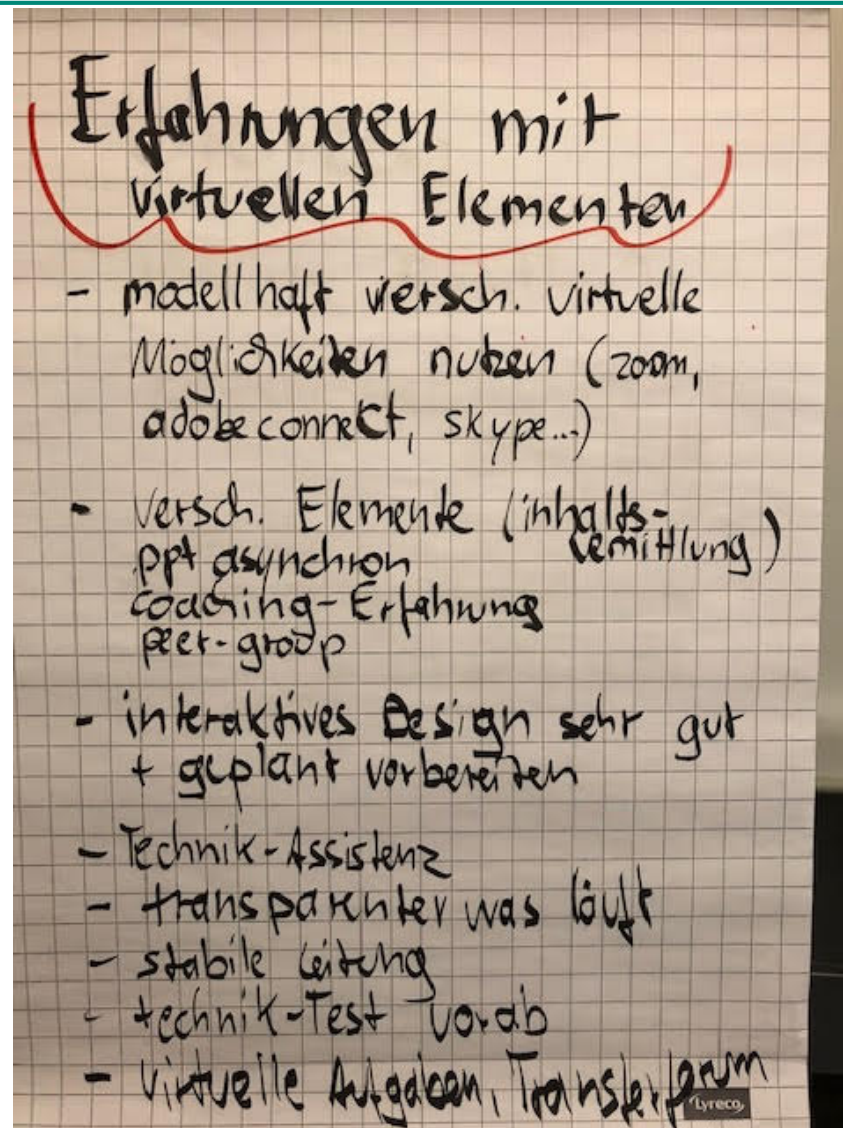 Erfahrungen mit
virtuellen Elementen
- modellhaft versch. virtuelle
Möglichkeiten nutzen (zoom,
adobe connect, skype...)
- versch. Elemente (inhalts-
vermittlung)
ppt asynchron
coaching-Erfahrung
peer-group
- interaktives Design sehr gut
+ geplant vorbereiten
- Technik-Assistenz
- transparenter was läuft
- stabile Leitung
- technik-Test vorab
- virtuelle Aufgaben, Transferforum
Lyreco